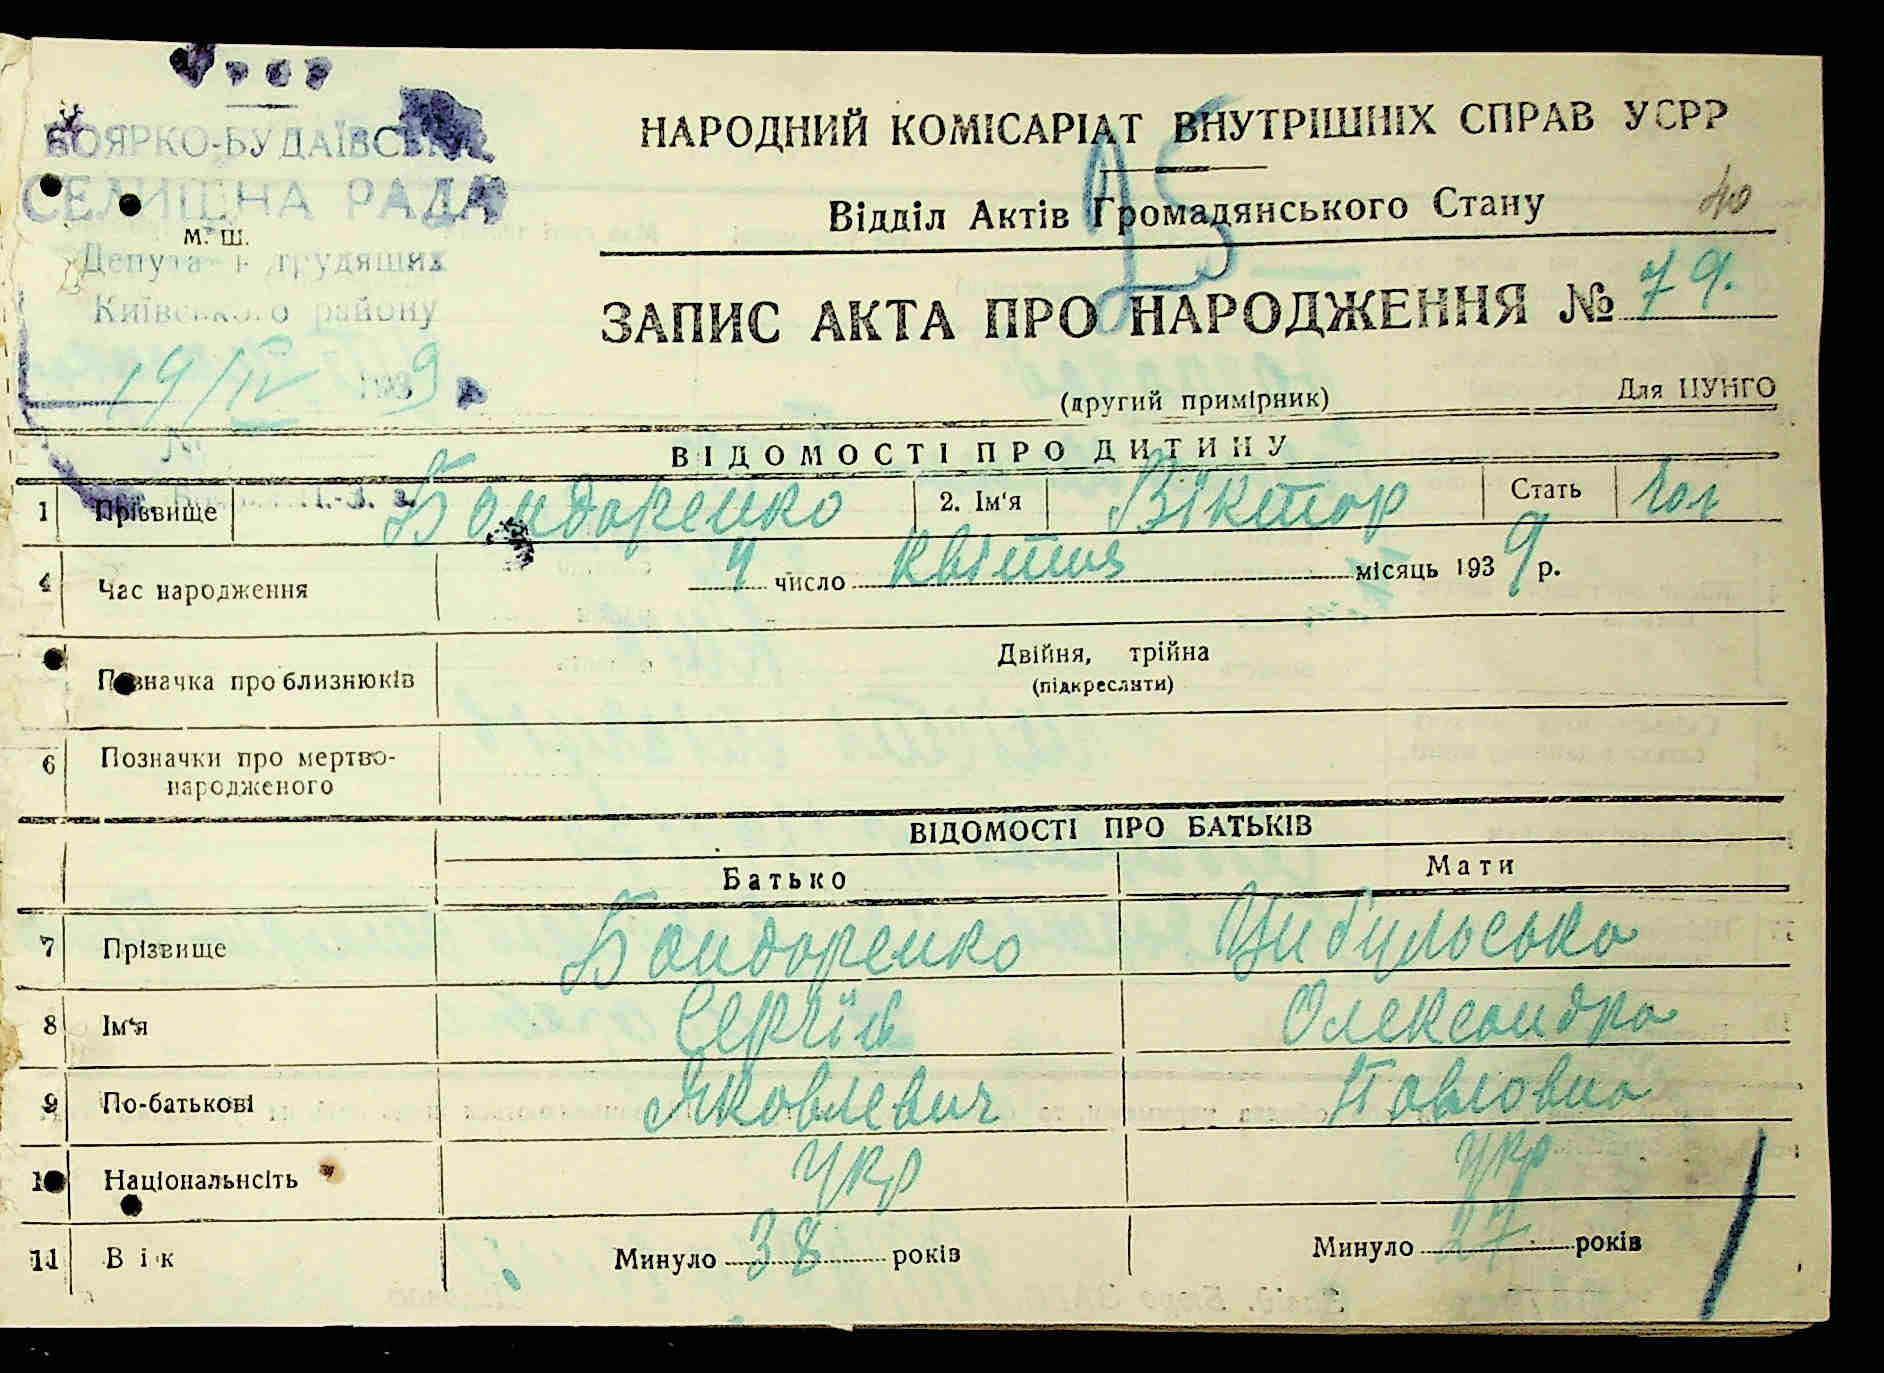 УСРР
БОЯРКО-БУДАЇВСЬКА
СЕЛИЩНА РАДА
М. Ш.
Депутатів трудящих
Київського району
19/IV 1939
№
НАРОДНИЙ КОМІСАРІАТ ВНУТРІШНІХ СПРАВ УСРР
Відділ Актів Громадянського Стану
40
ЗАПИС АКТА ПРО НАРОДЖЕННЯ № 79.
(другий примірник)
Для ЦУНГО
ВІДОМОСТІ ПРО ДИТИНУ
1 Прізвище Бондаренко 2. Ім'я Віктор Стать Чол
4 Час народження 4 число Квітня місяць 1939 р.
Позначка про близнюків Двійня, трійна
(підкреслити)
6 Позначки про мертво-
народженого
ВІДОМОСТІ ПРО БАТЬКІВ
Батько Мати
7 Прізвище Бондаренко Цибульська
8 Ім'я Сергій Олександра
9 По-батькові Яковлевич Павловна
10 Національнсіть Укр Укр
11 Вік Минуло 38 років Минуло 27 років